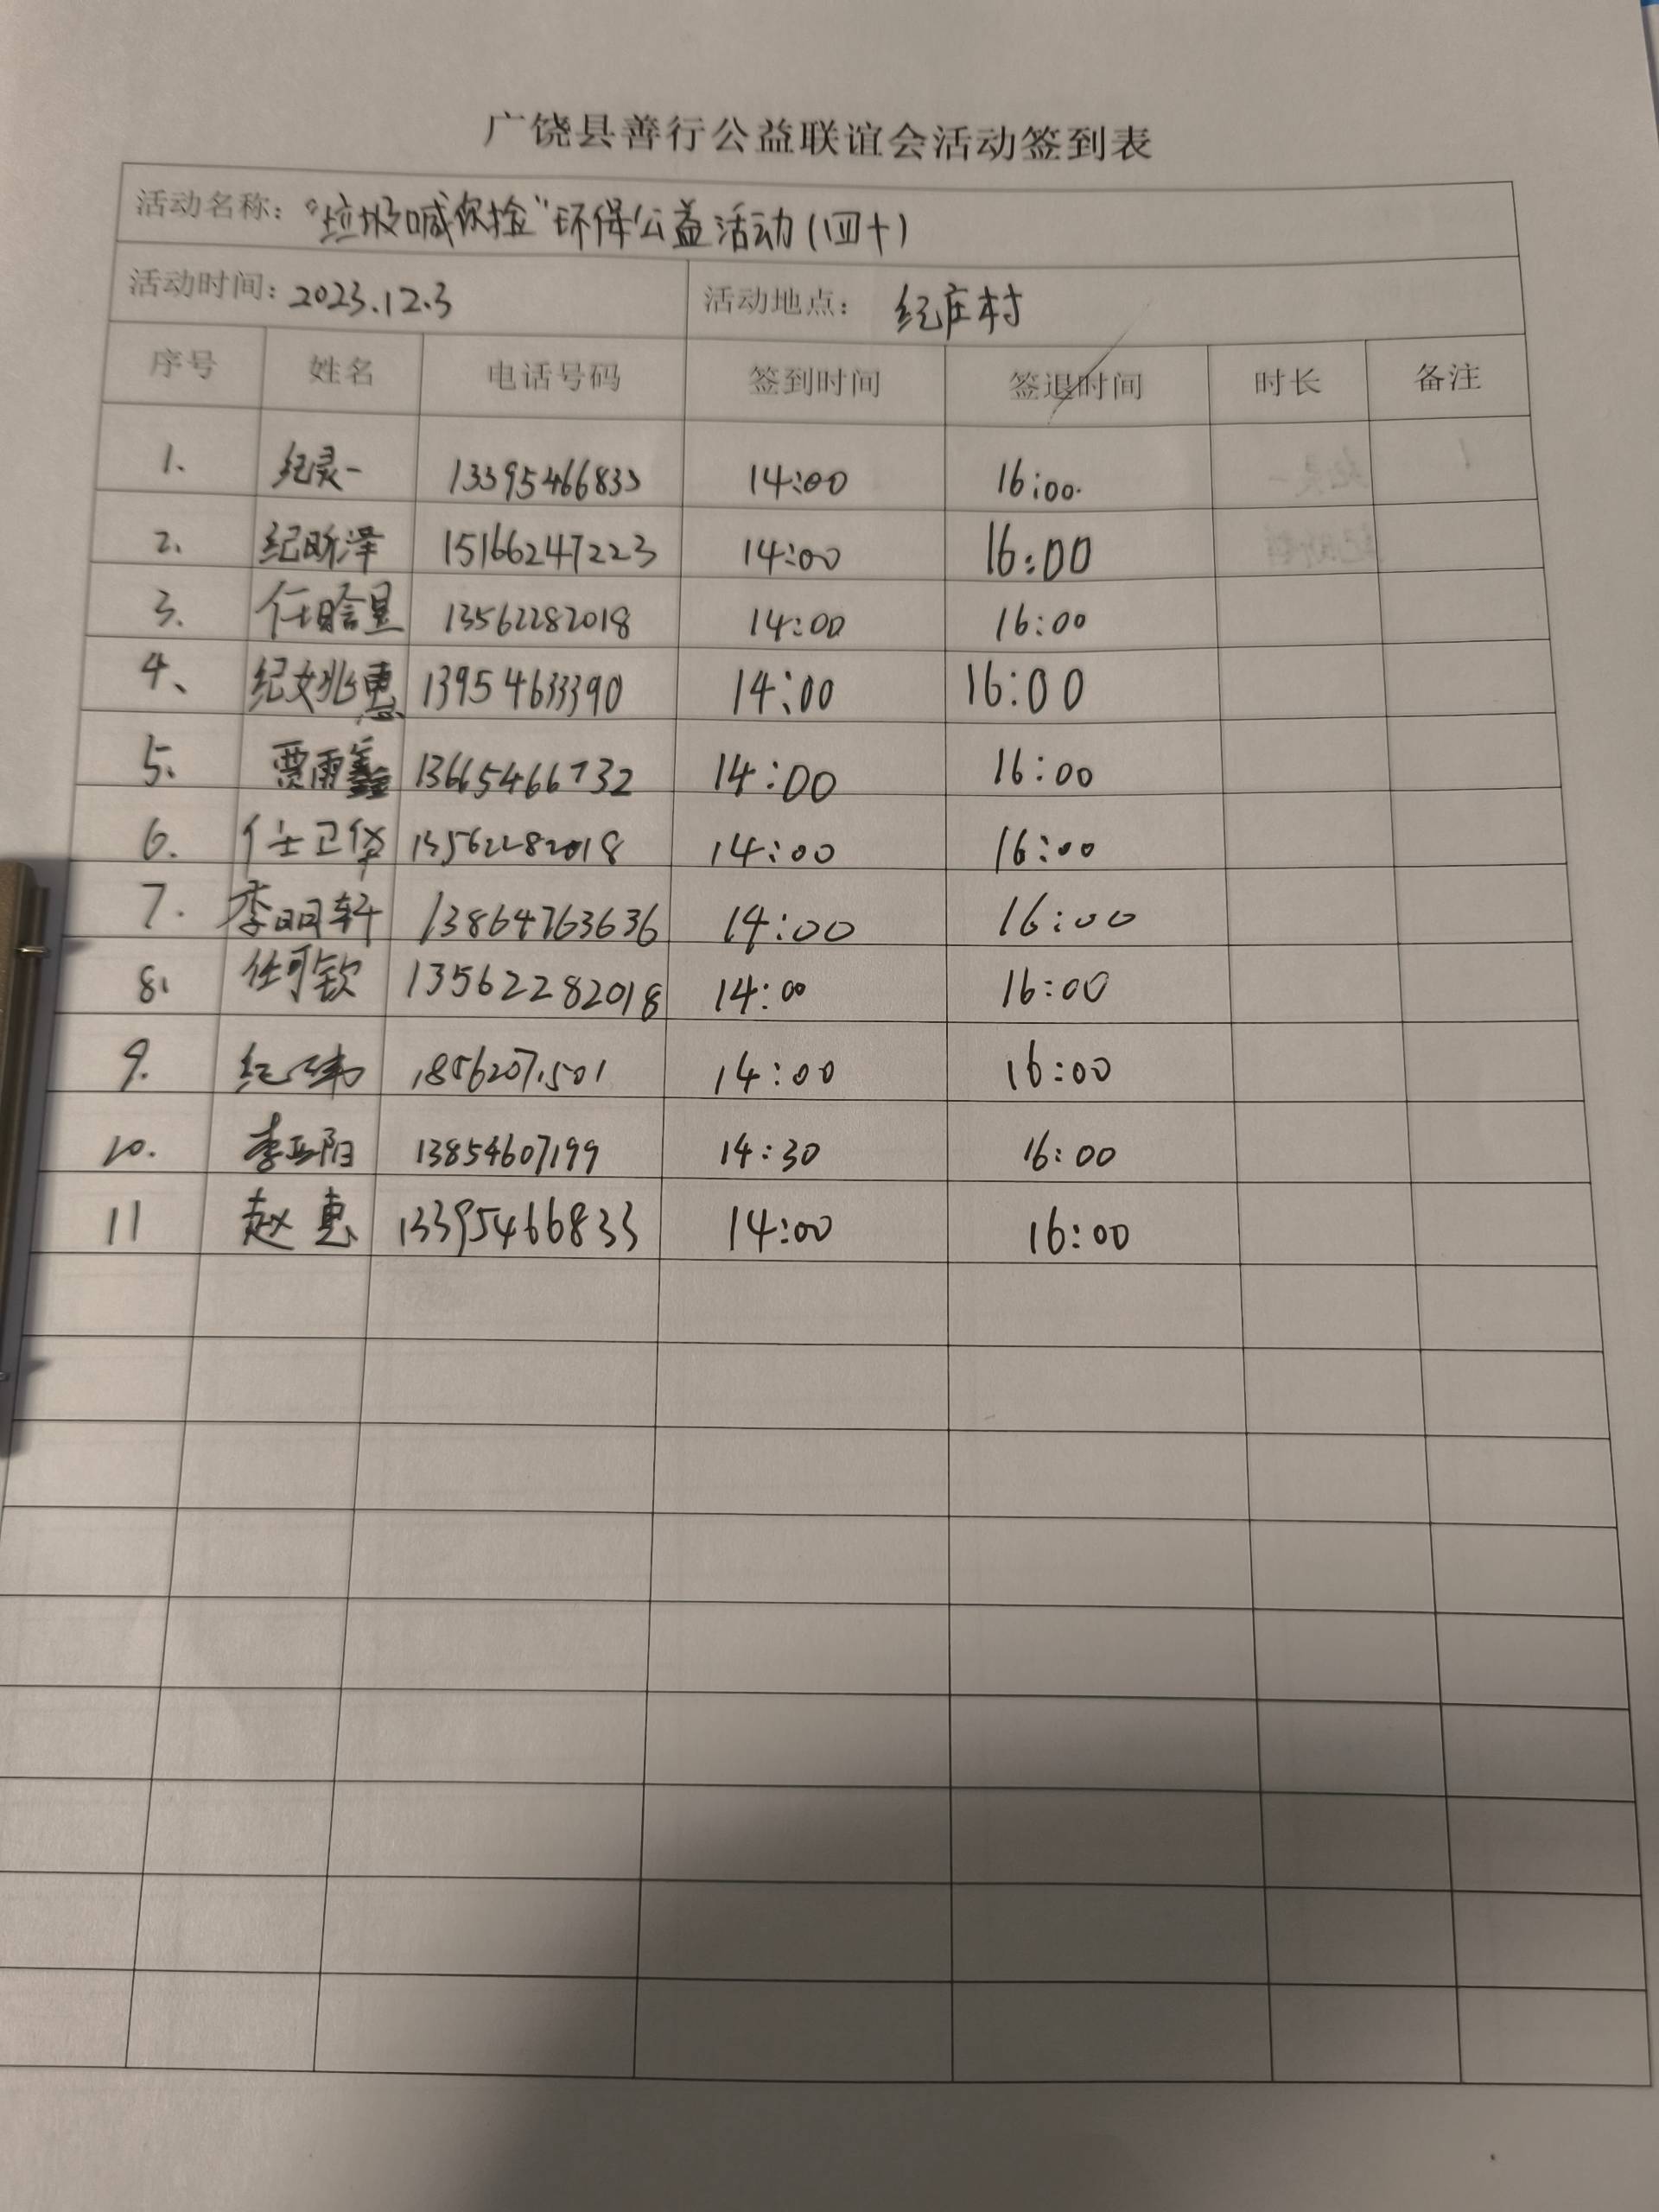 广饶县善行公益联谊会活动签到表
活动名称：“垃圾喊你捡”环保公益活动（四十）
活动时间：2023.12.3 活动地点： 纪庄村
序号 姓名 电话号码 签到时间 签退时间 时长 备注
1. 纪灵一 13395466833 14:00 16:00.
2. 纪昕泽 15166247223 14:00 16:00
3. 任晗昱 13562282018 14:00 16:00
4、 纪姚惠 13954633390 14:00 16:00
5. 贾雨鑫 13665466732 14:00 16:00
6. 任卫华 13562282018 14:00 16:00
7. 李明轩 13864763636 14:00 16:00
8. 任可钦 13562282018 14:00 16:00
9. 纪纬 18562071501 14:00 16:00
10. 李正阳 13854607199 14:30 16:00
11 赵惠 13395466833 14:00 16:00